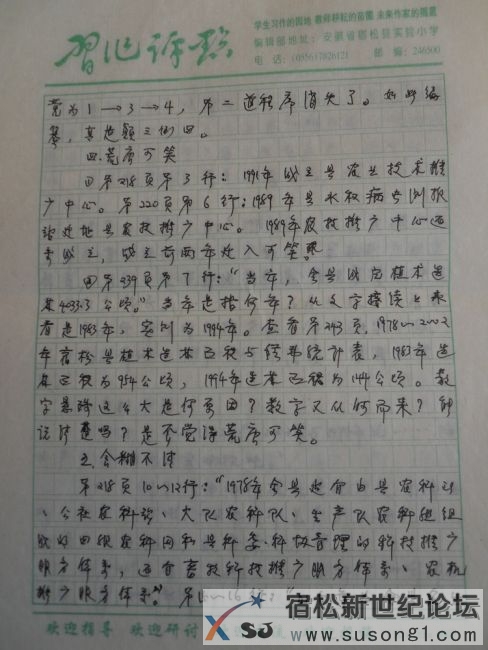 习作评点
学生习作的园地 教师耕耘的苗圃 未来作家的摇篮
编辑部地址：安徽省宿松县实验小学
电话：(0556)7826121 邮编：246500
变为1→3→4，第二道程序消失了。如此编
纂，真是颠三倒四。
四.荒唐可笑
第218页第3行：1991年成立县农业技术推
广中心。第220页第6行：1989年县水稻病虫测报
站迁地县农技推广中心。1989年农技推广中心还
未成立，成立前两年迁入可笑。
第239页第7行："当年，全县成片植树造
林4033.3公顷。"当年是指何年？从文字接读上来
看是1983年，实则为1994年。查看第243页，1978～2002
年宿松县植树造林面积与保存统计表，1983年造
林面积为954公顷，1994年造林面积为144公顷。数
字悬殊这么大是何原因？数字又从何而来？能
说清楚吗？是不觉得荒唐可笑。
五.含糊不清
第218页10～12行："1978年全县建有由县农科所
、公社农科站、大队农科队、生产队农科组组
成的四级农科网和县科委、科协管理的科技推广
服务体系，还有畜牧科技推广服务体系、农机
推广服务体系。"第
欢迎指导 欢迎研讨
XSJ
宿松新世纪论坛
www.susong1.com